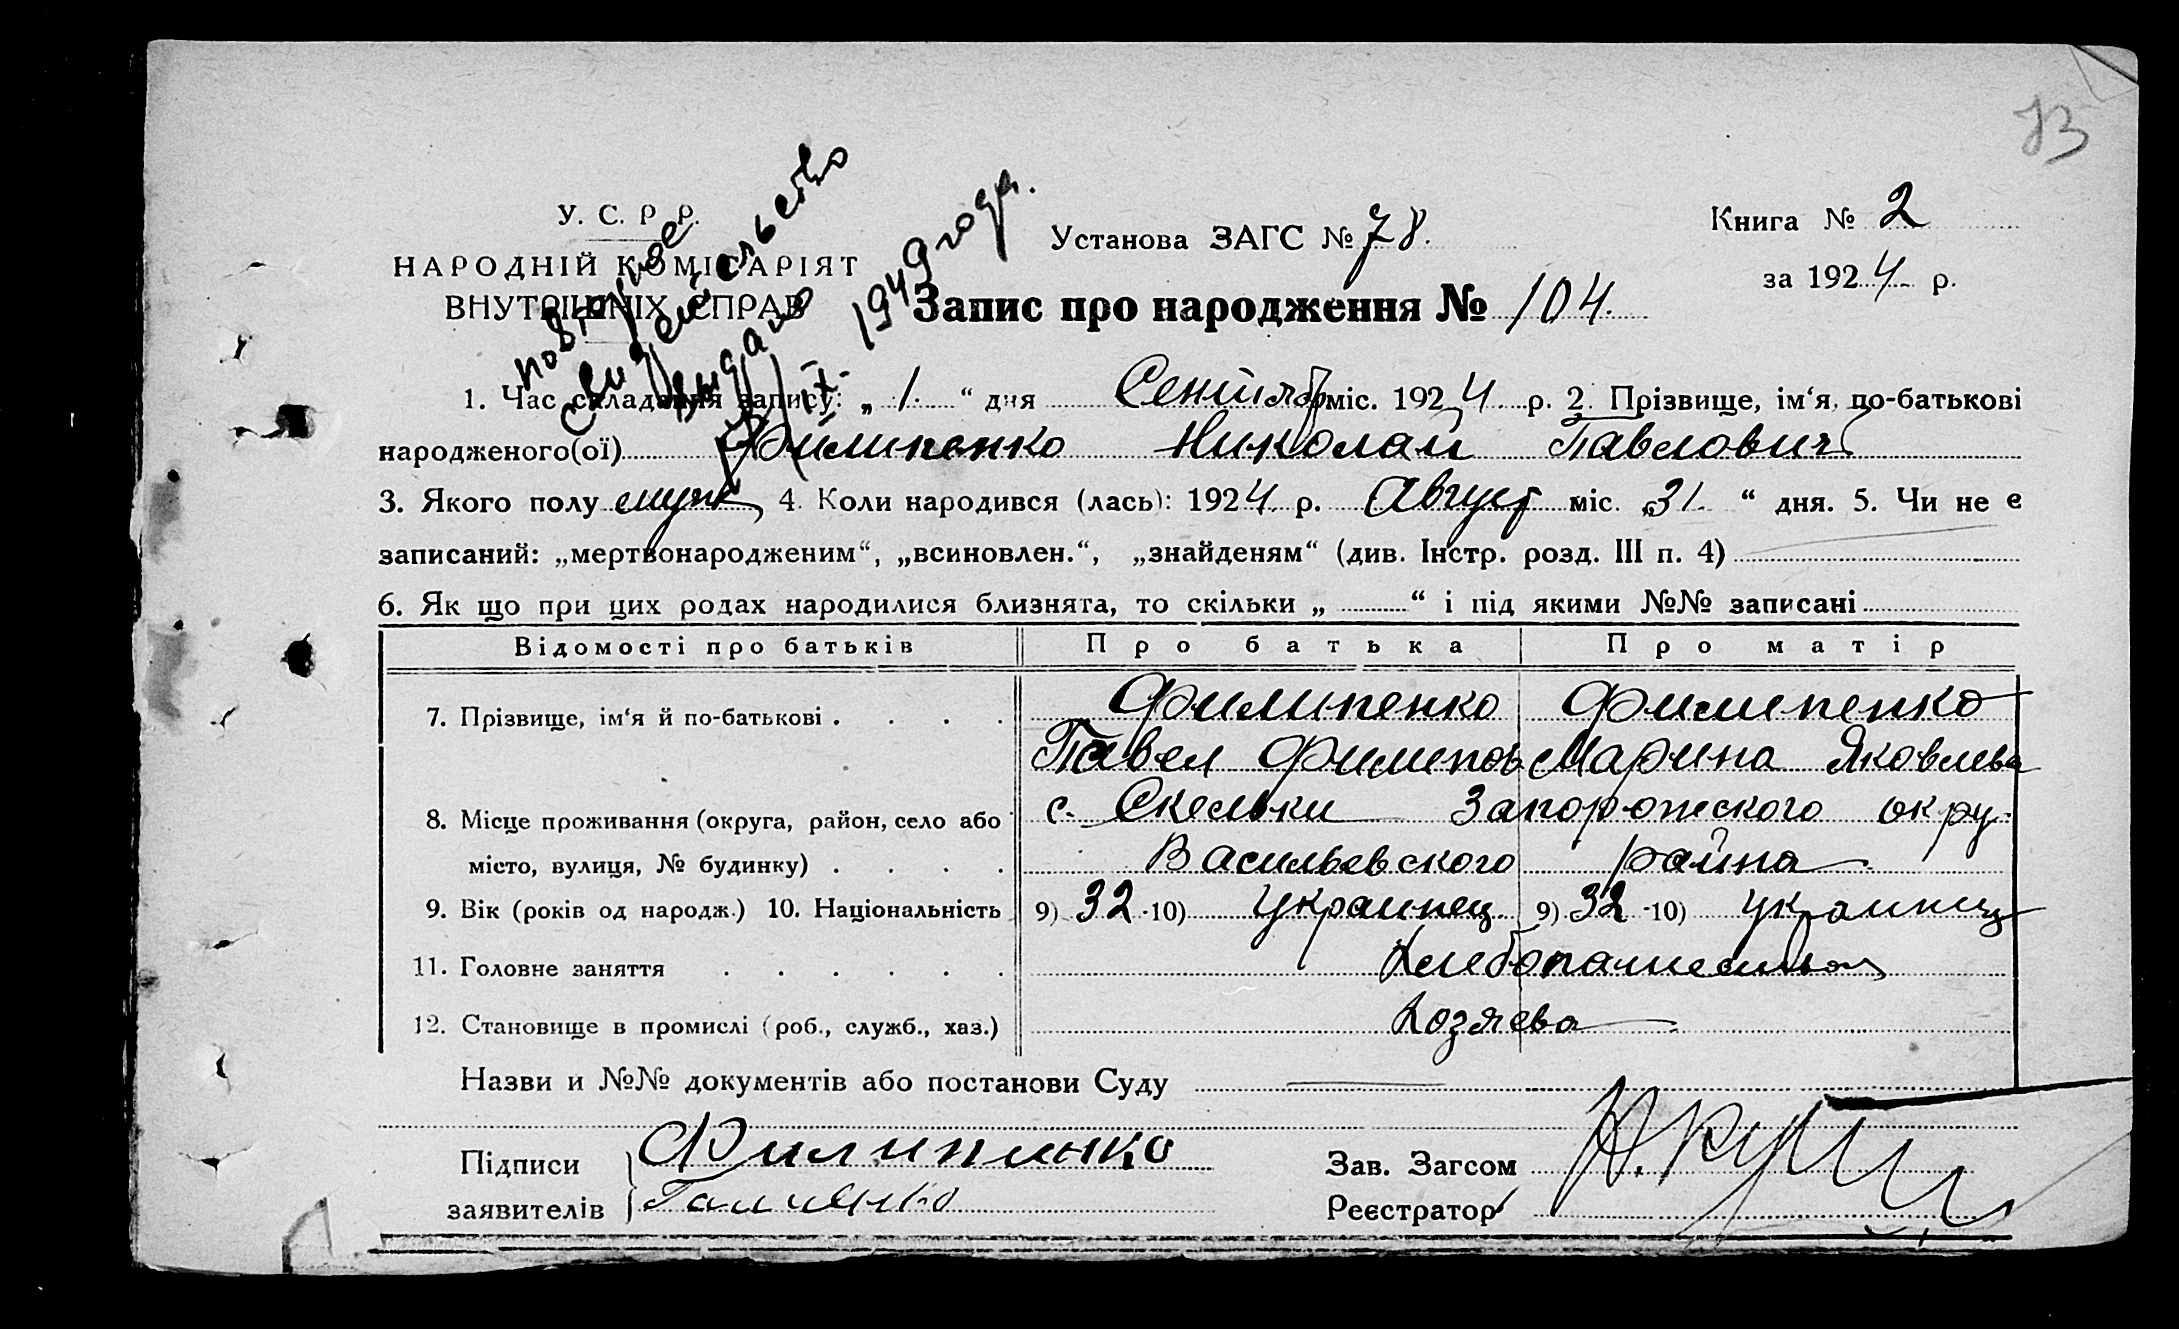 73
У. С. Р. Р.
НАРОДНІЙ КОМІСАРІЯТ
ВНУТРІШНІХ СПРАВ
повторное
свидетельство
выдано
IX. 1949 года.
Установа ЗАГС № 78.
Книга № 2
за 1924 р.
Запис про народження № 104.
1. Час складання запису: „ 1. “ дня Сентяб міс. 1924 р. 2. Прізвище, ім‘я, по-батькові
народженого(ої) Филипенко Николай Павлович
3. Якого полу муж 4. Коли народився (лась): 1924 р. Август міс. „31. “ дня. 5. Чи не є
записаний: „мертвонародженим“, „всиновлен.“, „знайденям“ (див. Інстр. розд. III п. 4)
6. Як що при цих родах народилися близнята, то скільки „ “ і під якими №№ записані
Відомості про батьків Про батька Про матір
7. Прізвище, ім‘я й по-батькові . . . . Филипенко Филипенко
Павел Филипов Марина Яковлева
8. Місце проживання (округа, район, село або с. Скельки Запорожского окру.
місто, вулиця, № будинку) . . . . Васильевского района
9. Вік (років од народж.) 10. Національність 9) 32 10) Украинец 9) 32 10) украинц
11. Головне заняття . . . . . . Хлебопашеством
12. Становище в промислі (роб., служб., хаз.) Хозяева
Назви й №№ документів або постанови Суду
Підписи Филипенко
Зав. Загсом
заявителів
Реєстратор